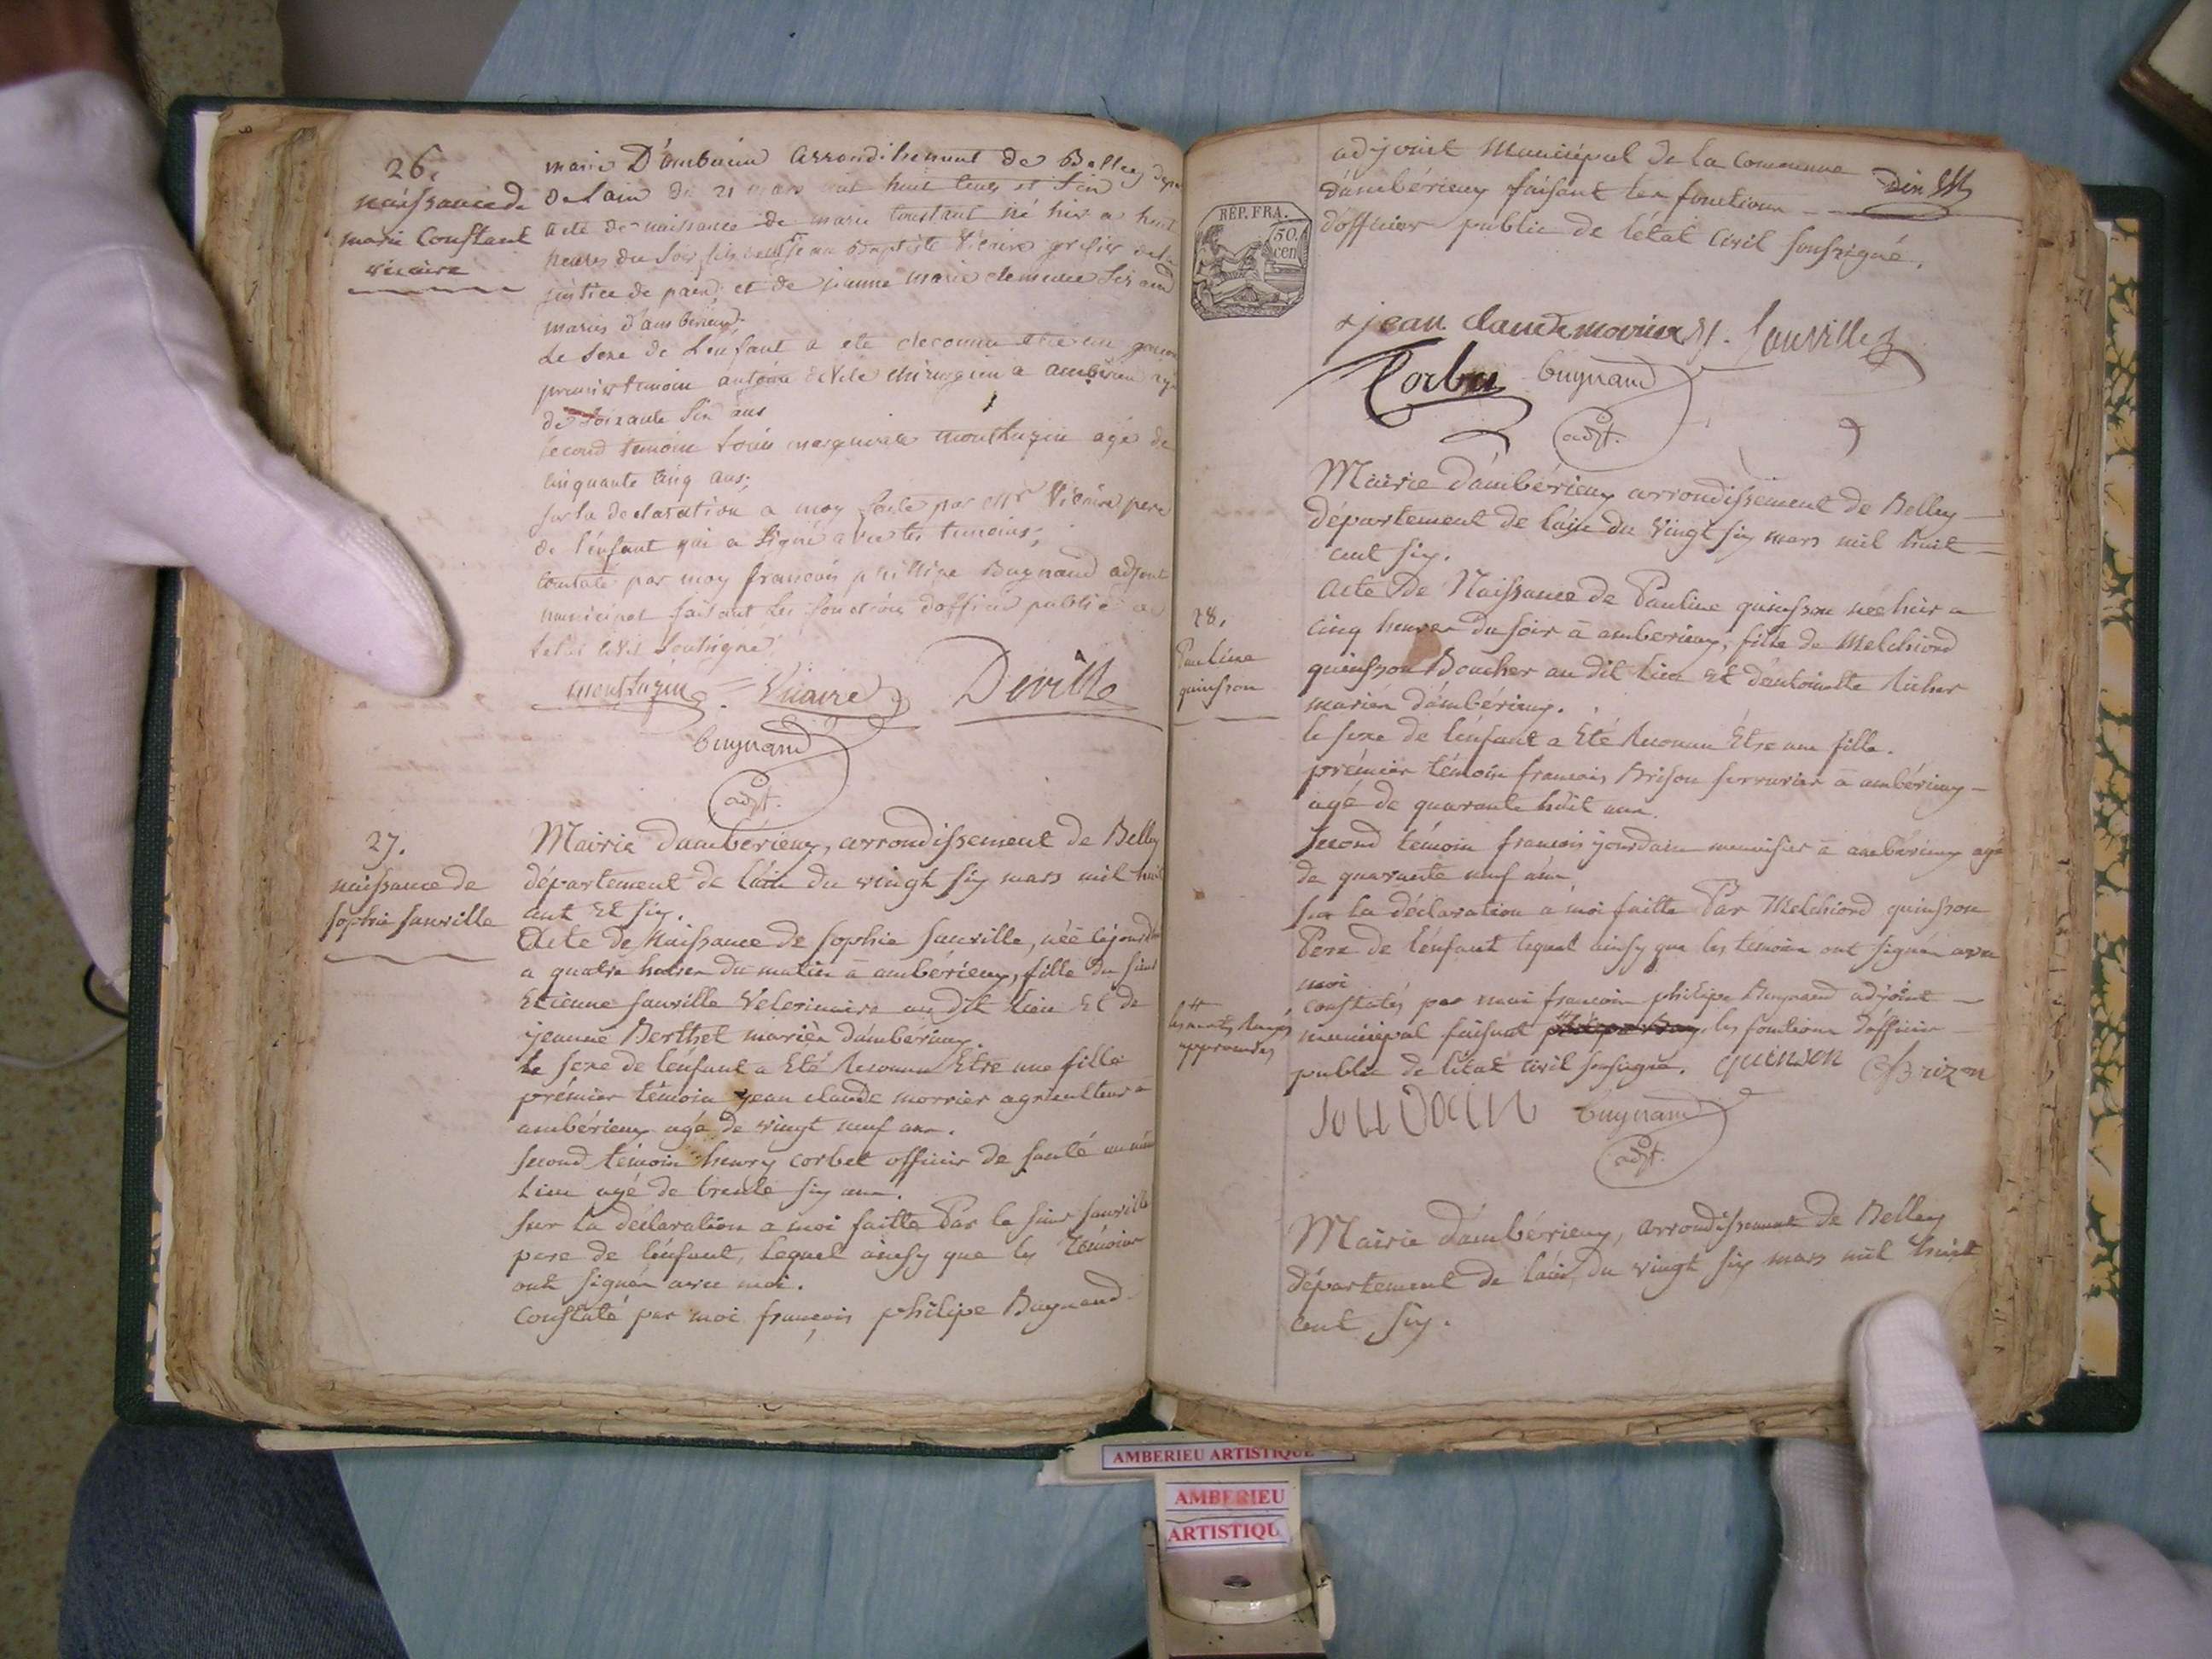 26.
naissance de
marie Constant
vicaire
mairie D'amberieu arrondissement de Belley
de Lain du 21 mars mil huit cents et six
acte de naissance de marie Constant né hier a huit
heures du soir fils de Jean Baptiste Vicaire grefier de la
justice de paix; et de jeanne marie
mariés d'amberieu;
Le sexe de Lenfant a été reconnu etre un garcon
premier temoin antoine deville chirurgien a amberieu agé
de soixante six ans
second temoin Louis marguerite montluzin agé de
cinquante cinq ans;
sur la declaration a moy faite par Mr Vicaire pere
de l'enfant qui a signé avec les temoins;
constaté par moy francois philipe Bugnand adjoint
municipal faisant les fonctions d'officier public de
letat civil soussigné
montluzin Vicaire Deville
bugnand
adjt.
27.
naissance de
sophie sauville
Mairie d'ambérieux, arrondissement de Belley
département de l'ain du vingt six mars mil huit
cent et six.
Acte de Naissance de sophie sauville, née cejourd'hui
a quatre heures du matin à ambérieux, fille du sieur
Etienne sauville Veterinaire au dit lieu Et de
jeanne Berthet mariés d'ambérieux.
le sexe de l'enfant a Eté Reconnu Etre une fille
prémier témoin jean claude morrier agriculteur à
ambérieux agé de vingt neuf ans.
second témoin henry corbet officier de santé au même
Lieu agé de trente six ans.
sur la déclaration a moi faitte Par le sieur sauville
pere de l'enfant, lequel ainsy que les témoins
ont signés avec moi.
constaté par moi françois philipe Bugnand
adjoint Municipal de la Commune
d'ambérieux faisant les fonctions
d'officier public de l'état Civil soussigné.
REP. FRA.
50.
cen
jean claude morier Sauville
Corbet bugnand
adjt.
Mairie d'ambérieux arrondissement de Belley
département de l'ain du vingt six mars mil huit
cent six.
28.
Pauline
quinsson
Acte De Naissance de Pauline quinsson née hier a
cinq heures du soir à amberieux, fille de Melchiord
quinsson Boucher au dit lieu Et d'antoinette Richer
mariés d'ambérieux.
le sexe de l'énfant a Eté Reconnu Etre une fille.
prémier témoin francois Brison serrurier à ambérieux
agé de quarante huit ans.
second témoin francois jourdain menuisier à ambérieux agé
de quarante neuf ans,
sur la déclaration a moi faitte Par Melchiord quinsson
Pere de l'énfant lequel ainsy que les témoins ont signés avec
moi
constatés par moi francois philipe Bugnand adjoint
les mots Rayés
approuvés
municipal faisant philipe Bug les fonctions d'officier
public de l'état civil soussigné. quinson Brizon
JOURDAIN bugnand
adjt.
Mairie d'ambérieux, arrondissement de Belley
département de l'ain, du vingt six mars mil huit
cent six.
AMBERIEU ARTISTIQUE
AMBERIEU
ARTISTIQU